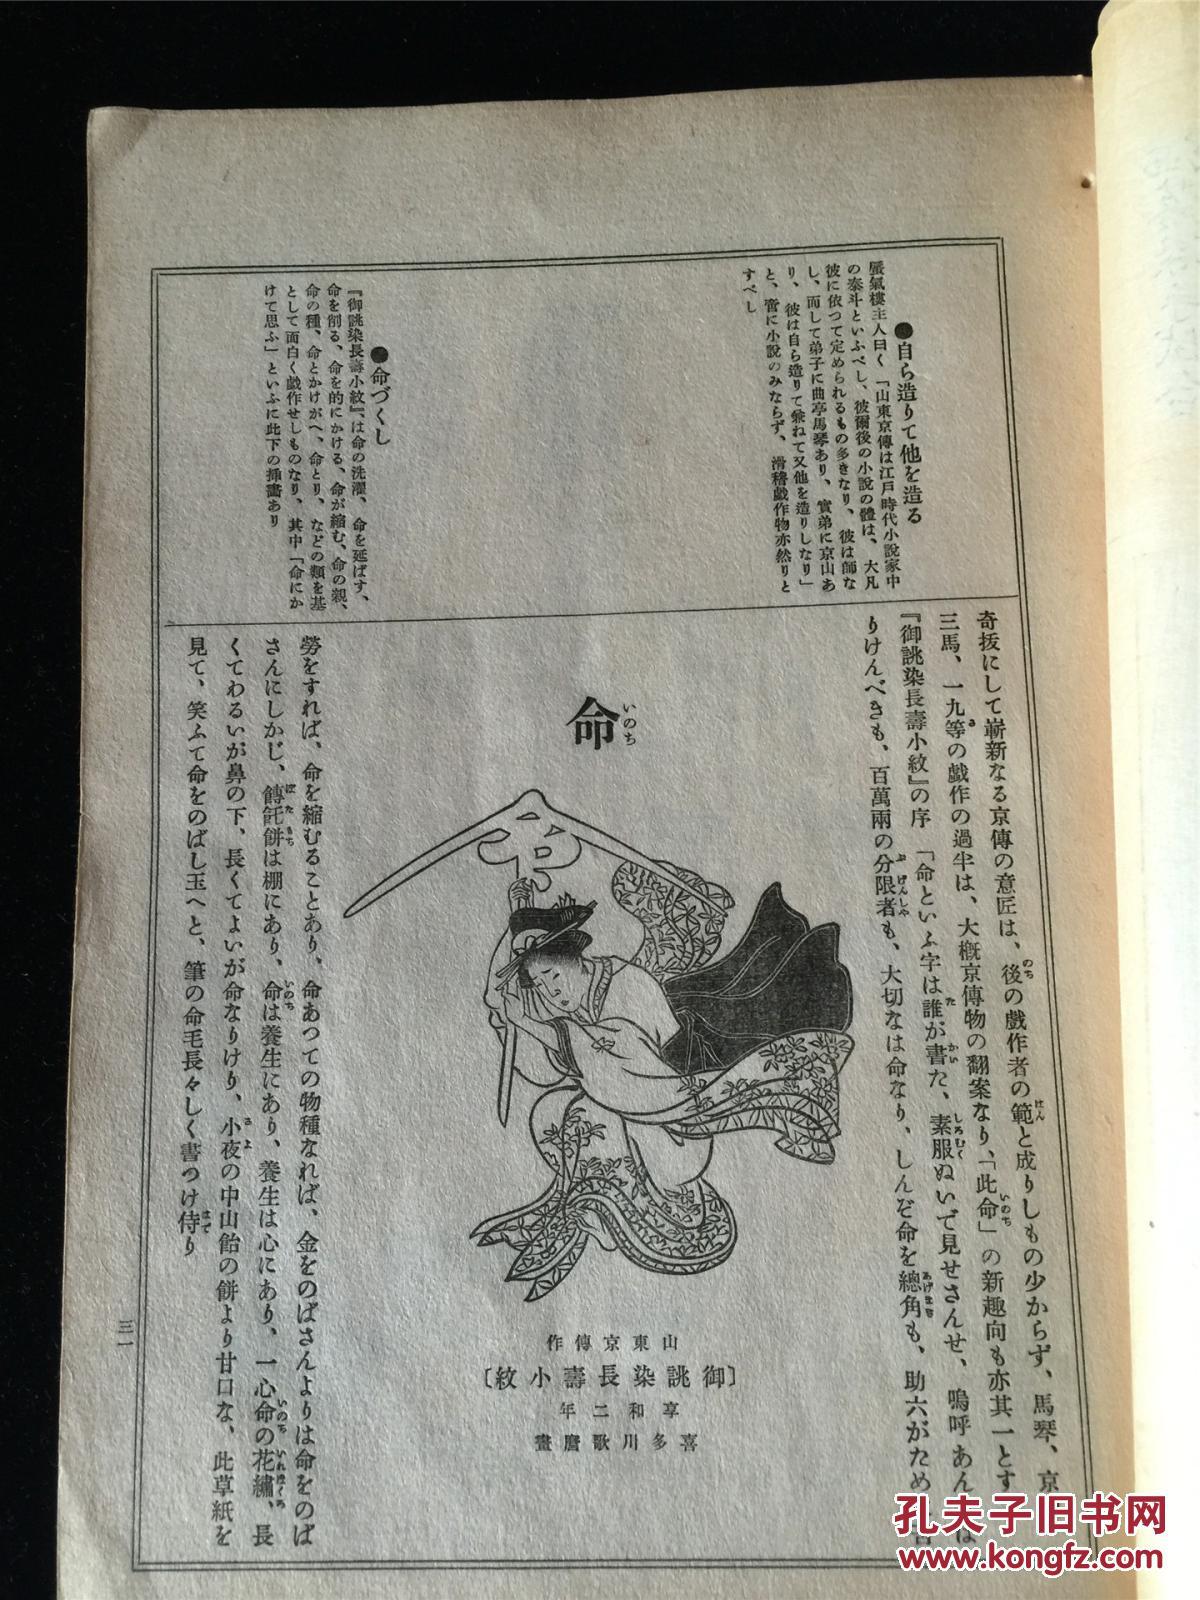 ●自ら造りて他を造る
蜃氣樓主人曰く「山東京傳は江戸時代小説家中
の泰斗といふべし、彼爾後の小説の體は、大凡
彼に依つて定められるもの多きなり、彼は師な
し、而して弟子に曲亭馬琴あり、實弟に京山あ
り、彼は自ら造りて兼ねて又他を造りしなり」
と、啻に小説のみならず、滑稽戯作物亦然りと
すべし
●命づくし
『御誂染長壽小紋』は命の洗濯、命を延ばす、
命を削る、命を的にかける、命が縮む、命の親、
命の種、命とかけがへ、命とり、などの類を基
として面白く戯作せしものなり、其中「命にか
けて思ふ」といふに此下の挿畫あり
奇抜にして嶄新なる京傳の意匠は、後の戯作者の範と成りしもの少からず、馬琴、京
三馬、一九等の戯作の過半は、大概京傳物の翻案なり、「此命」の新趣向も亦其一とす
『御誂染長壽小紋』の序 「命といふ字は誰が書た、素服ぬいで見せさんせ、嗚呼あん は
りけんべきも、百萬兩の分限者も、大切なは命なり、しんぞ命を總角も、助六がため
命
いのち
山東京傳作
〔御誂染長壽小紋〕
享和二年
喜多川歌麿畫
勞をすれば、命を縮むることあり、命あつての物種なれば、金をのばさんよりは命をのば
さんにしかじ、餺飥餅は棚にあり、命は養生にあり、養生は心にあり、一心命の花繡、長
くてわるいが鼻の下、長くてよいが命なりけり、小夜の中山飴の餅より甘口な、此草紙を
見て、笑ふて命をのばし玉へと、筆の命毛長々しく書つけ侍り
三一
孔夫子旧书网
www.kongfz.com